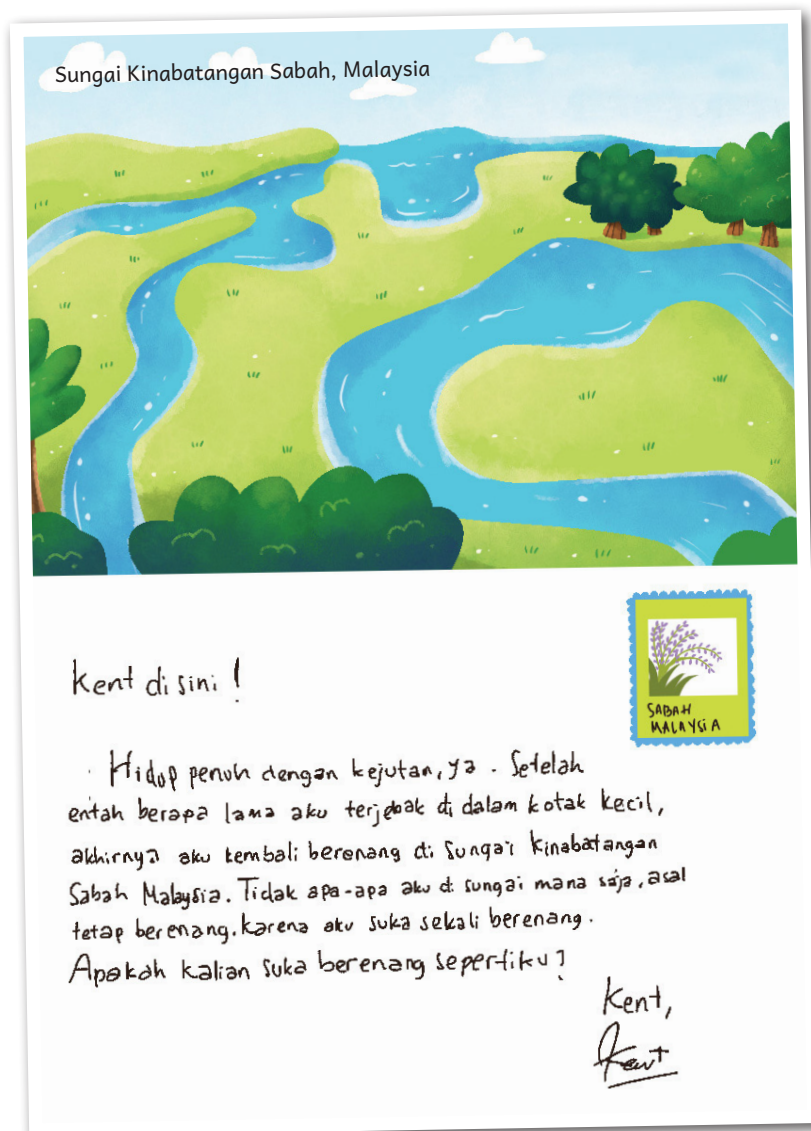 Sungai Kinabatangan Sabah, Malaysia
SABAH
MALAYSiA
Kent di sini!
Hidup penuh dengan kejutan, ya. Setelah
entah berapa lama aku terjebak di dalam kotak kecil,
akhirnya aku kembali berenang di Sungai Kinabatangan
Sabah Malaysia. Tidak apa-apa aku di sungai mana saja, asal
tetap berenang. Karena aku suka sekali berenang.
Apakah kalian suka berenang sepertiku?
Kent,
Kent